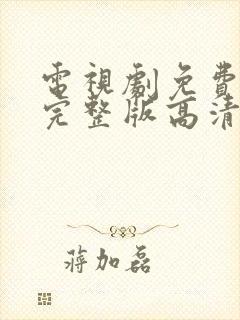 電視劇免費
完整版高清
蔣加磊